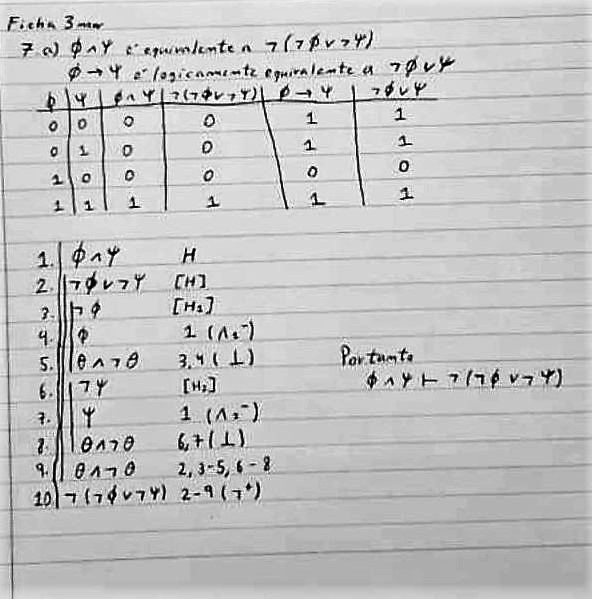 Ficha 3
7 a) ϕ ∧ ψ é equivalente a ¬(¬ϕ ∨ ¬ψ)
ϕ → ψ é logicamente equivalente a ¬ϕ ∨ ψ
ϕ | ψ | ϕ ∧ ψ | ¬(¬ϕ ∨ ¬ψ) | ϕ → ψ | ¬ϕ ∨ ψ
0 | 0 | 0 | 0 | 1 | 1
0 | 1 | 0 | 0 | 1 | 1
1 | 0 | 0 | 0 | 0 | 0
1 | 1 | 1 | 1 | 1 | 1
1. ϕ ∧ ψ H
2. ¬ϕ ∨ ¬ψ [H]
3. ¬ϕ [H₂]
4. ϕ 1 (∧₂⁻)
5. θ ∧ ¬θ 3,4 (⊥)
6. ¬ψ [H₂]
7. ψ 1 (∧₂⁻)
8. θ ∧ ¬θ 6,7 (⊥)
9. θ ∧ ¬θ 2, 3-5, 6-8
10 ¬(¬ϕ ∨ ¬ψ) 2-9 (¬⁺)
Portanto
ϕ ∧ ψ ⊢ ¬(¬ϕ ∨ ¬ψ)